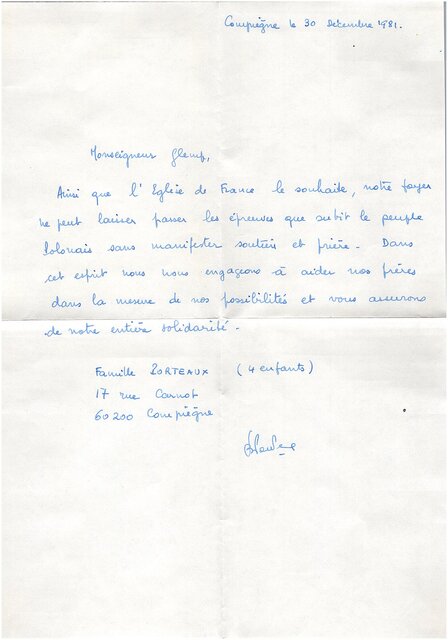 Compiègne le 30 Décembre 1981.
Monseigneur Glemp,
Ainsi que l'Eglise de France le souhaite, notre foyer
ne peut laisser passer les épreuves que subit le peuple
Polonais sans manifester soutien et prière. Dans
cet esprit nous nous engageons à aider nos frères
dans la mesure de nos possibilités et vous assurons
de notre entière solidarité.
Famille (4 enfants)
17 rue Carnot
60200 Compiègne